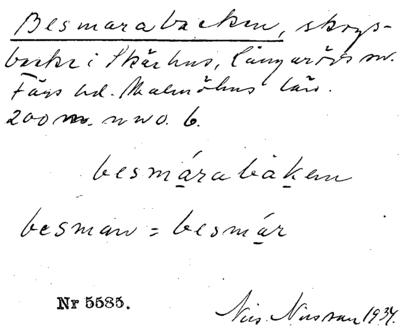 Besmarabacken, skogs-
backe i Skärhus, Långaröds sn.
Färs hd. Malmöhus län.
200 m. nno. 6.
besmárabákem
besman = besmár
Nr 5585.
Nils Nilsson 1934.